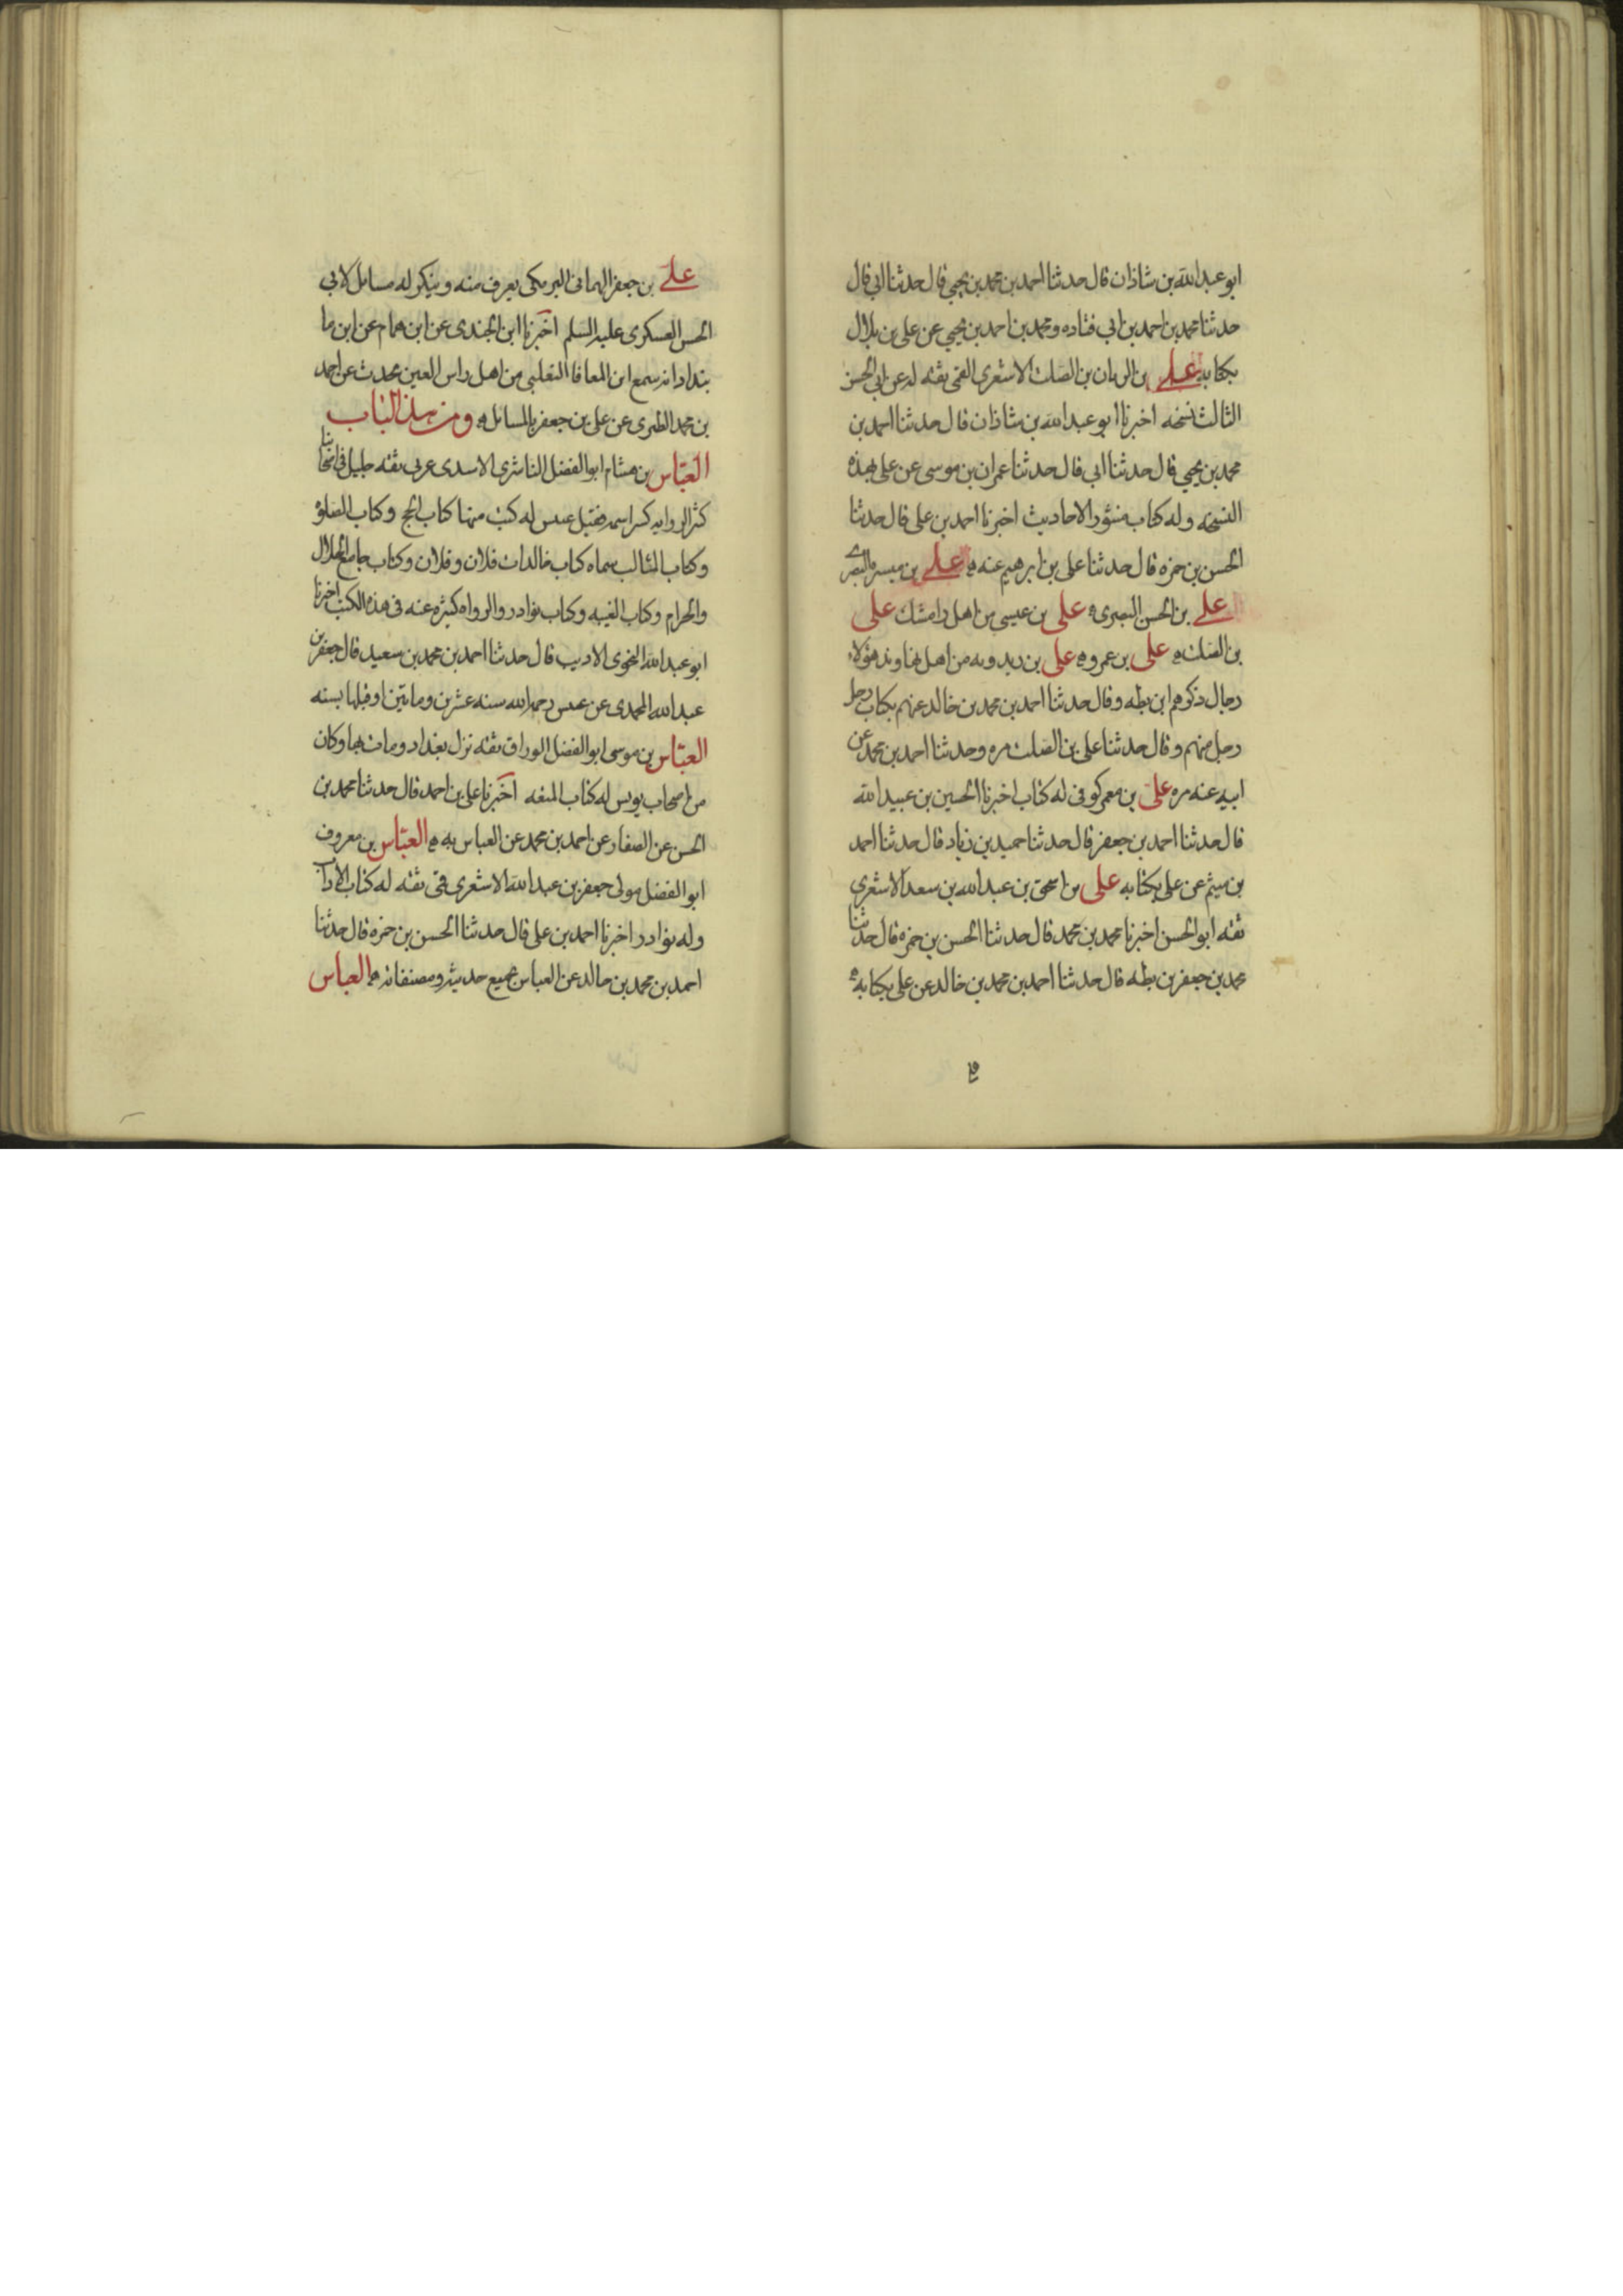 ابو عبد الله بن شاذان قال حدثنا احمد بن محمد بن يحيي قال حدثنا ابي قال
حدثنا محمد بن احمد بن ابي قتاده ومحمد بن احمد بن يحيي عن علي بن بلال
بكتابه علي بن الريان بن الصلت الاشعري القمي ثقه له عن ابي الحسن
الثالث نسخه اخبرنا ابو عبد الله بن شاذان قال حدثنا احمد بن
محمد بن يحيي قال حدثنا ابي قال حدثنا عمران بن موسى عن علي بهذه
النسخه وله كتاب منثور الاحاديث اخبرنا احمد بن علي قال حدثنا
الحسن بن حمزه قال حدثنا علي بن ابرهيم عنه علي بن ميسره البصري
علي بن الحسن البصري علي بن عيسى من اهل دامشك علي
بن الصلت علي بن عمرو علي بن زيدويه من اهل نهاوند هؤلاء
رجال ذكرهم ابن بطه وقال حدثنا احمد بن محمد بن خالد عنهم بكتاب رجل
رجل منهم وقال حدثنا علي بن الصلت مره وحدثنا احمد بن محمد عن
ابيه عنه مره علي بن معمر كوفى له كتاب اخبرنا الحسين بن عبيد الله
قال حدثنا احمد بن جعفر قال حدثنا حميد بن زياد قال حدثنا احمد
بن ميثم عن علي بكتابه علي بن اسحق بن عبد الله بن سعد الاشعري
ثقه ابو الحسن اخبرنا محمد بن محمد قال حدثنا الحسن بن حمزه قال حدثنا
محمد بن جعفر بن بطه قال حدثنا احمد بن محمد بن خالد عن علي بكتابه
علي بن جعفر الهمانى البرمكى يعرف منه وينكر له مسايل لابي
الحسن العسكرى عليه السلم اخبرنا ابن الجندى عن ابن همام عن ابن ما
بنداد انه سمع ابن المعافا التغلبى من اهل راس العين يحدث عن احمد
بن محمد الطبرى عن على بن جعفر بالمسائل ومن هذا الباب
العباس بن هشام ابو الفضل الناشرى الاسدى عربى ثقه جليل فى اصحابنا
كثير الروايه كسر اسمه فقيل عبيس له كتب منها كتاب الحج وكتاب الصلوة
وكتاب المثالب سماه كتاب خالدات فلان وفلان وكتاب جامع الحلال
والحرام وكتاب الغيبه وكتاب نوادر والرواه كثيره عنه فى هذه الكتب اخبرنا
ابو عبد الله النحوى الاديب قال حدثنا احمد بن محمد بن سعيد قال جعفر بن
عبد الله المحمدى عن عبيس رحمه الله سنه عشرين وماتين او قبلها بسنه
العباس بن موسى ابو الفضل الوراق ثقه نزل بغداد ومات بها وكان
من اصحاب يونس له كتاب المتعه اخبرنا على بن احمد قال حدثنا محمد بن
الحسن عن الصفار عن احمد بن محمد عن العباس به العباس بن معروف
ابو الفضل مولى جعفر بن عبد الله الاشعرى قمى ثقه له كتاب الاداب
وله نوادر اخبرنا احمد بن على قال حدثنا الحسن بن حمزه قال حدثنا
احمد بن محمد بن خالد عن العباس بجميع حديثه ومصنفاته العباس